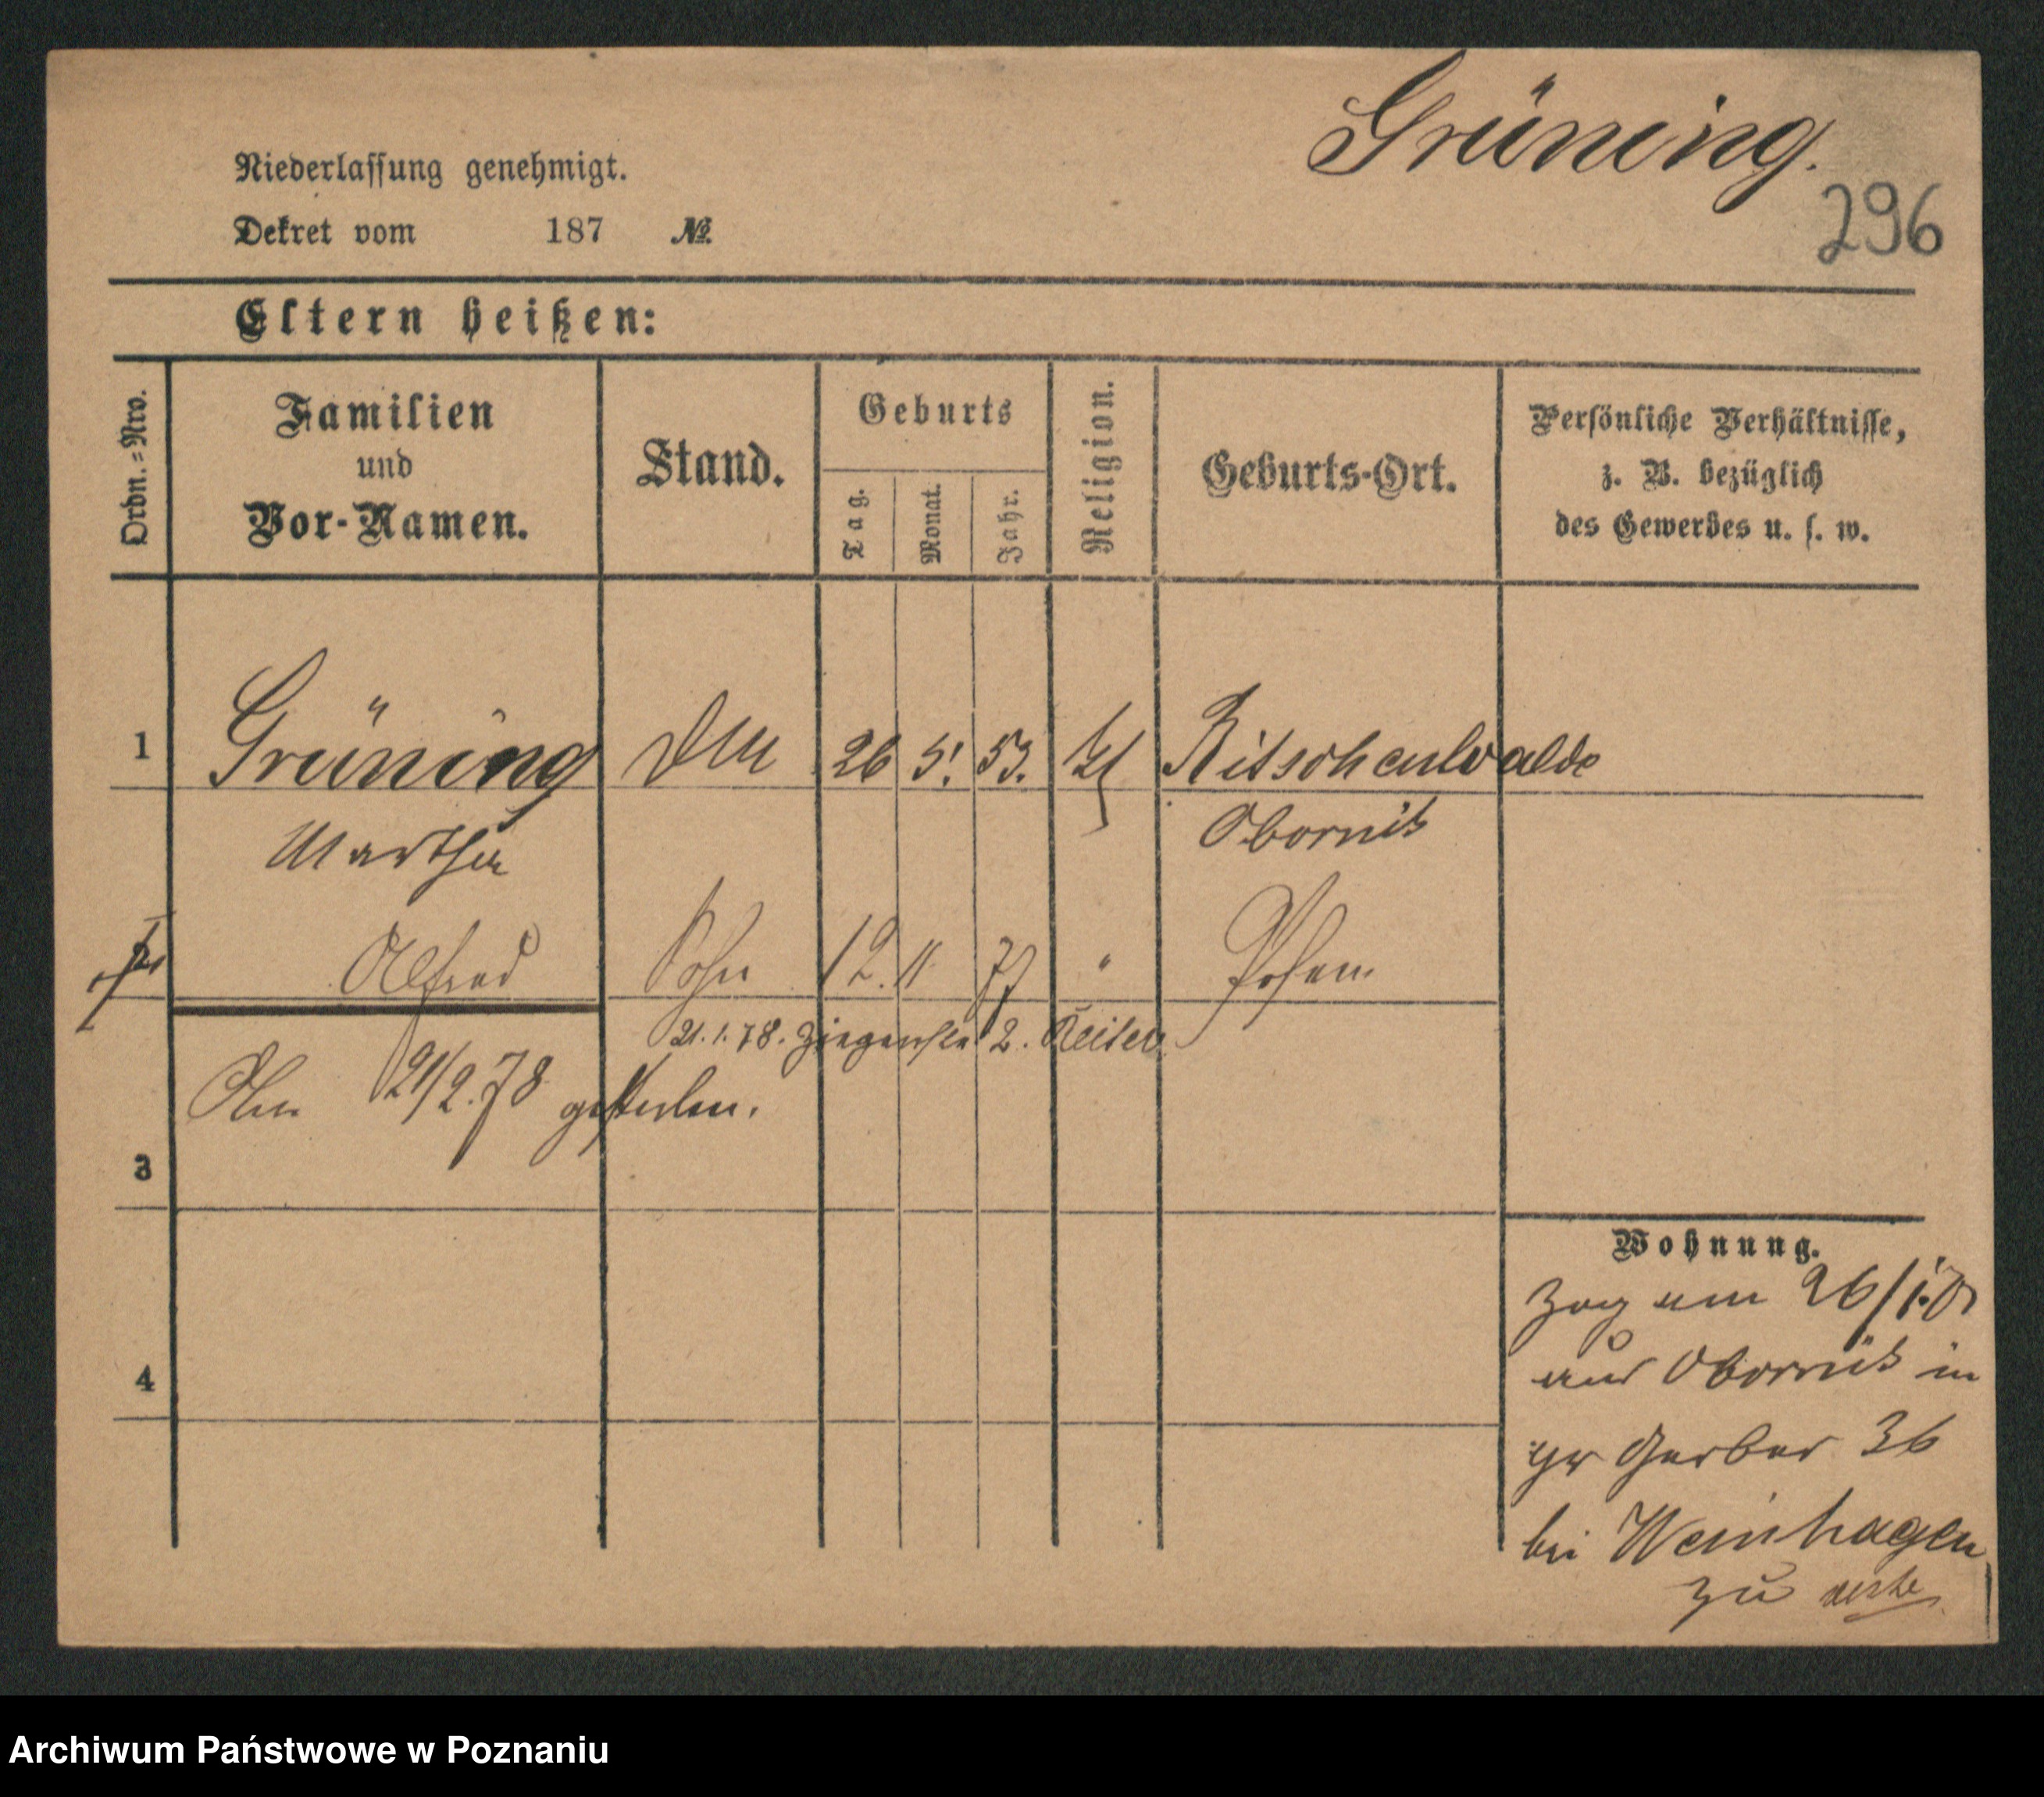 Grüning.
296
Niederlassung genehmigt.
Dekret vom 187 №
Eltern heißen:
Ordn.=Nro.
Familien
und
Vor-Namen.
Stand.
Geburts
Tag.
Monat.
Jahr.
Religion.
Geburts-Ort.
Persönliche Verhältnisse,
z. B. bezüglich
des Gewerbes u. s. w.
1 Grüning 26 5. 53. Ritschenwalde
Martha Obornik
2 Alfred Sohn 12. 11 77 " Posen
21.1.78. Ziegenstr 2. Reiter
Am 21/2.78 gestorben.
3
4
Wohnung.
zog am 26/10
aus Obornik in
gr Gerber 36
bei Weinhagen
zu
Archiwum Państwowe w Poznaniu